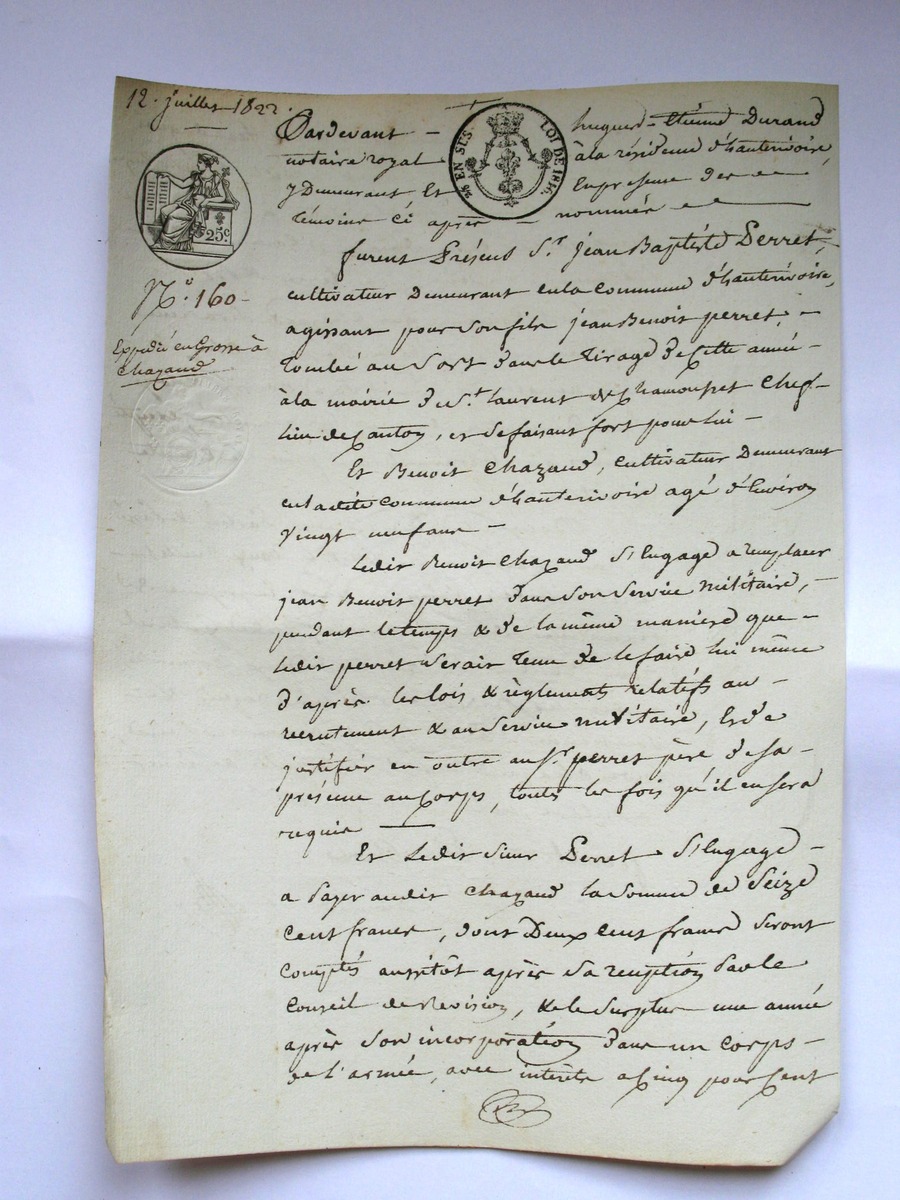 12. juillet 1822.
Pardevant hugues-Etienne Durand
notaire royal à la résidence d'hauterivoire
y Demeurant Et En presence des
témoins Ci après nommés
28 EN SUS. LOI DE 1816.
25c.
N.o 160
Expedié en Grosse à
Chazaud
furent Présens S.r jean Baptiste Perret,
cultivateur Demeurant en la commune d'hauterivoire,
agissant pour son fils jean Benoit perret,
tombé au Sort dans le tirage de cette année
à la mairie de St. laurent de Chamousset Chef-
lieu de Canton, et se faisant fort pour lui
Et Benoit Chazaud, cultivateur Demeurant
en ladite commune d'hauterivoire agé d'Environ
vingt neuf ans
Ledit Benoit Chazaud S'Engage a remplacer
jean Benoit perret dans Son Service militaire,
pendant le temps & de la même maniere que
Ledit perret Serait Tenu de le faire lui même
d'après les lois & règlements relatifs au
recrutement & au Service militaire, Et de
justifier en outre au S.r perret père de Sa
présence au Corps, toutes les fois qu'il en sera
requis
Et Ledit Sieur Perret S'Engage
a payer audit Chazaud la Somme de Seize
Cent francs, dont Deux Cent francs Seront
Comptés aussitôt après Sa reception par le
Conseil de Revision, & le Surplus une année
après Son incorporation dans un Corps
de l'armée, avec intérêts a Cinq pour Cent